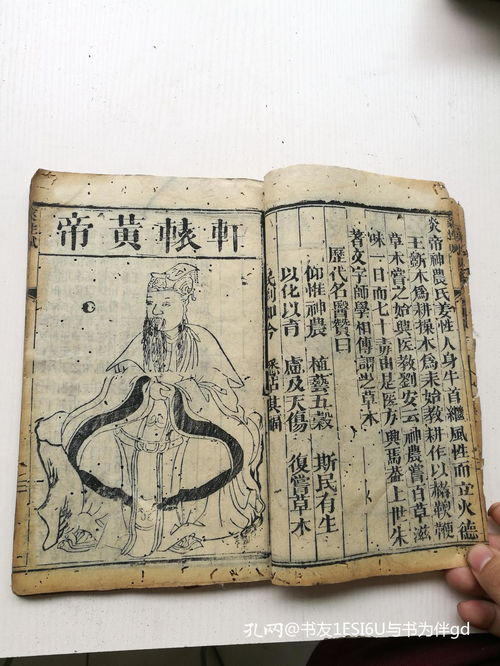 炎帝神農氏姜性人身牛首繼風性而立火德
王斲木爲耕操木爲耒始教耕作以鞭鞭
草木嘗之始興医教劉安云神農嘗百草滋
味一日而七十毒由是医方興焉葢上世朱
著文字師學相傳謂之草木
歷代名醫贊曰
仰惟神農 植藝五穀 斯民有生
以化以育 慮及夭傷 復嘗草木
民到如今
軒轅黃帝
孔网@书友1ESI6U与书为伴gd